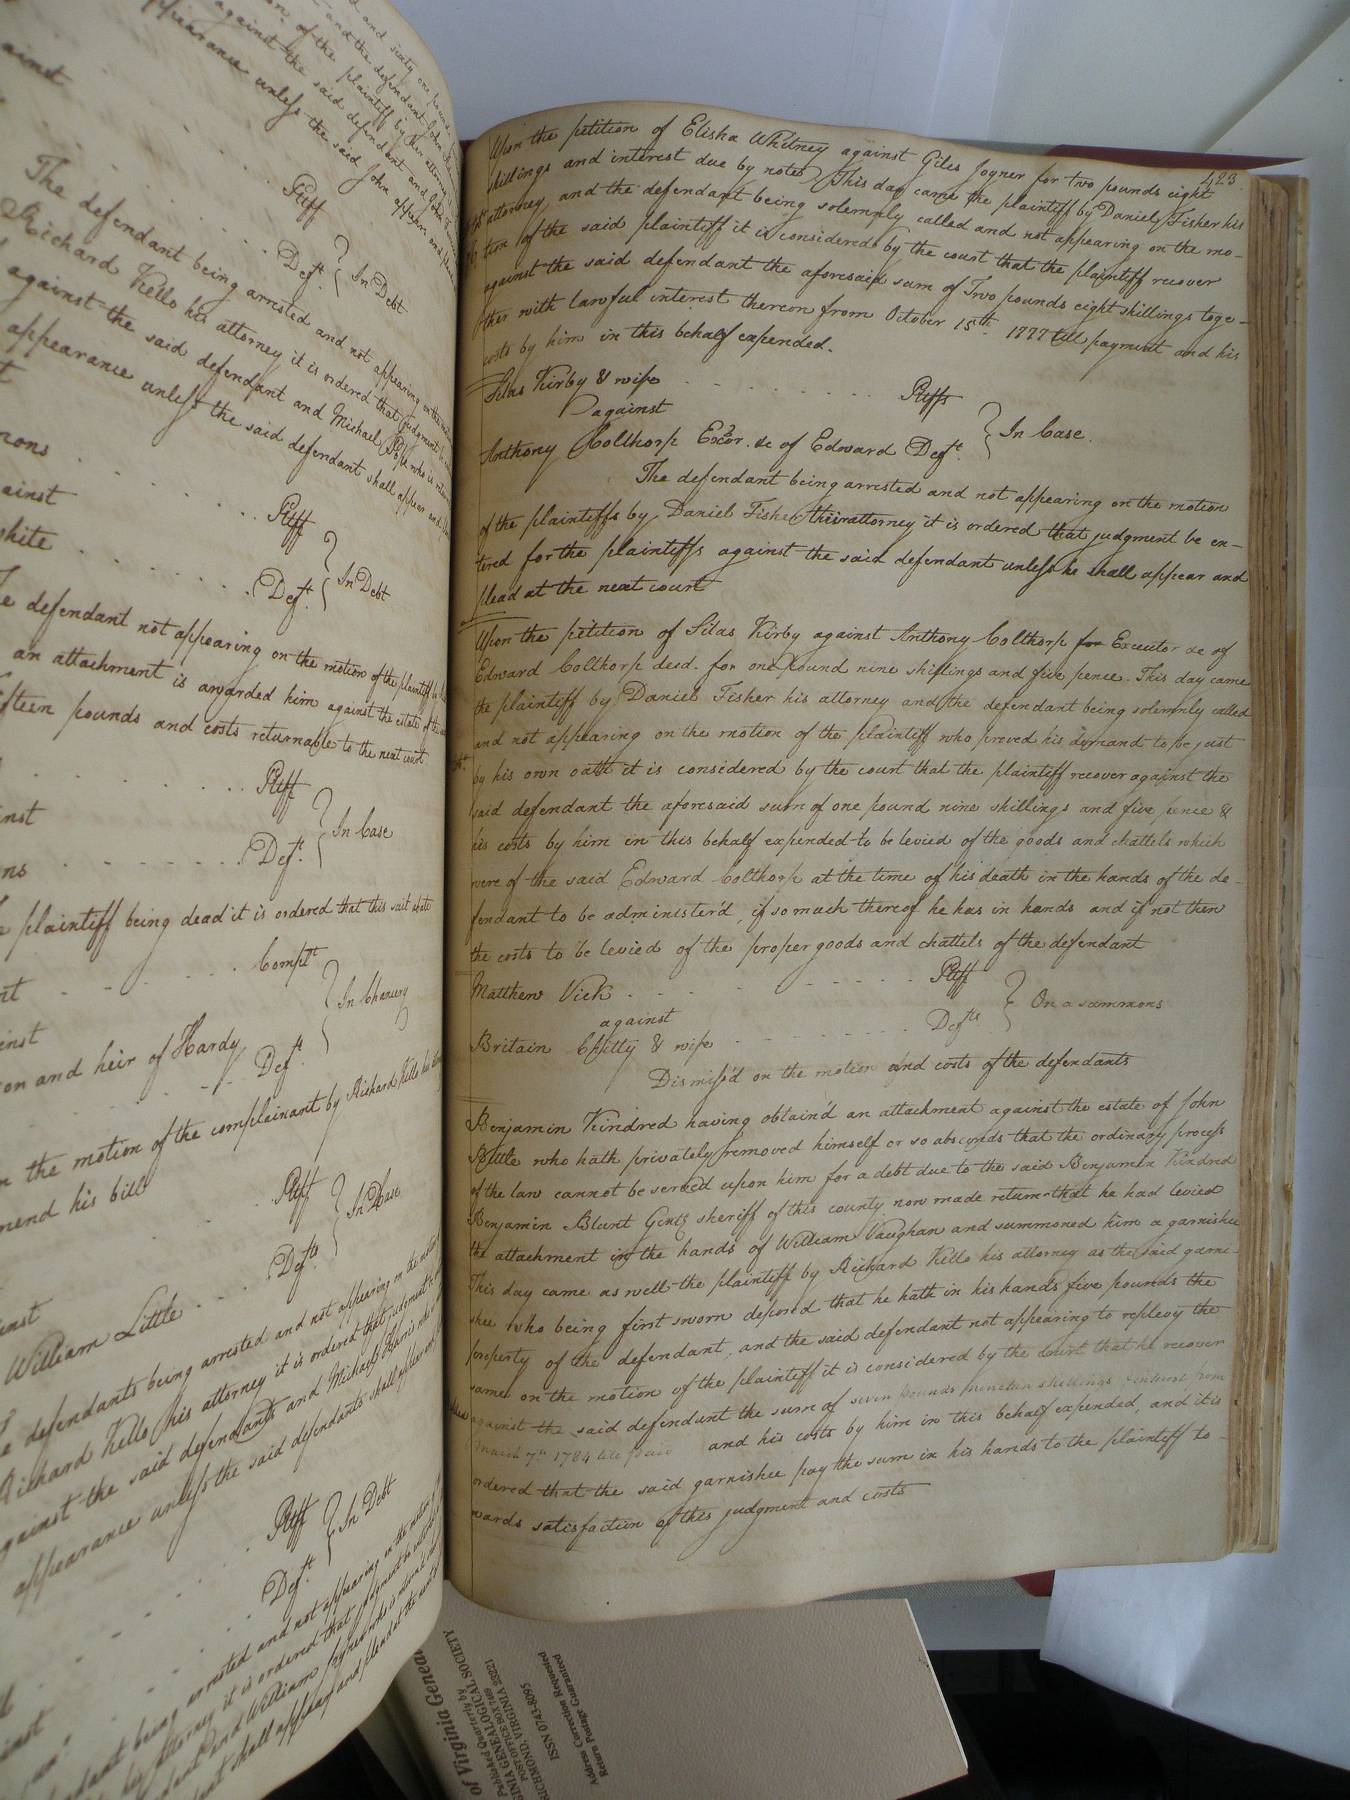 and sixty one pounds
and the defendant John
on of the plaintiff by his attorney
against the said defendant and John
appearance unless the said John appear and
ainst
Pltff
Deft. In Debt
The defendant being arrested and not appearing on the
Richard Kello his attorney it is ordered that judgment
against the said defendant and Michael who is
appearance unless the said defendant shall appear and
Pltff
ainst
Deft. In Debt
defendant not appearing on the motion of the plaintiff by
an attachment is awarded him against the estate of the
fifteen pounds and costs returnable to the next court
Pltff
inst
Deft. In Case
plaintiff being dead it is ordered that this suit abate
Complt
inst
In Chancery
on and heir of Hardy
Deft.
n the motion of the complainant by Richard Kello his
mend his bill
Pltff
In Case
Defts
inst
William Little
defendants being arrested and not appearing on the
Richard Kello his attorney it is ordered that judgment
against the said defendants and Michael Harris who
appearance unless the said defendants shall appear
Pltff
In Debt
Deft.
defendant being arrested and not appearing on the motion of
attorney it is ordered that judgment be
and William
shall appear and plead at the next
423
Upon the petition of Elisha Whitney against Giles Joyner for two pounds eight
shillings and interest due by note. This day came the plaintiff by Daniel Fisher his
attorney, and the defendant being solemnly called and not appearing on the mo-
tion of the said plaintiff it is considered by the court that the plaintiff recover
against the said defendant the aforesaid sum of Two pounds eight shillings toge-
ther with lawful interest thereon from October 15th. 1777 till payment and his
costs by him in this behalf expended.
Silas Kirby & wife Pltffs
against
In Case.
Anthony Colthorp Exor. &c of Edward Deft.
The defendant being arrested and not appearing on the motion
of the plaintiffs by Daniel Fisher their attorney it is ordered that judgment be en-
tered for the plaintiffs against the said defendant unless he shall appear and
plead at the next court
Upon the petition of Silas Kirby against Anthony Colthorp for Executor &c of
Edward Colthorp decd. for one pound nine shillings and five pence. This day came
the plaintiff by Daniel Fisher his attorney and the defendant being solemnly called
and not appearing on the motion of the plaintiff who proved his demand to be just
by his own oath it is considered by the court that the plaintiff recover against the
said defendant the aforesaid sum of one pound nine shillings and five pence &
his costs by him in this behalf expended to be levied of the goods and chattels which
were of the said Edward Colthorp at the time of his death in the hands of the de-
fendant to be administer'd, if so much thereof he has in hands and if not then
the costs to be levied of the proper goods and chattels of the defendant
Matthew Vick Pltff
against
On a summons
Britain Chitty & wife Defts
Dismiss'd on the motion and costs of the defendants
Benjamin Kindred having obtain'd an attachment against the estate of John
Bittle who hath privately removed himself or so absconds that the ordinary process
of the law cannot be served upon him for a debt due to the said Benjamin Kindred
Benjamin Blunt Gent. sheriff of this county now made return that he had levied
the attachment in the hands of William Vaughan and summoned him a garnishee
This day came as well the plaintiff by Richard Kello his attorney as the said garni-
shee who being first sworn deposed that he hath in his hands five pounds the
property of the defendant, and the said defendant not appearing to replevy the
same on the motion of the plaintiff it is considered by the court that he recover
against the said defendant the sum of seven pounds nineteen shillings interest from
March 7th 1784 till paid and his costs by him in this behalf expended, and it is
ordered that the said garnishee pay the sum in his hands to the plaintiff to-
wards satisfaction of this judgment and costs
of Virginia Genea
Published Quarterly by
GINIA GENEALOGICAL SOCIETY
POST OFFICE BOX 7469
RICHMOND, VIRGINIA 23221
ISSN 0743-8095
Address Correction Requested
Return Postage Guaranteed